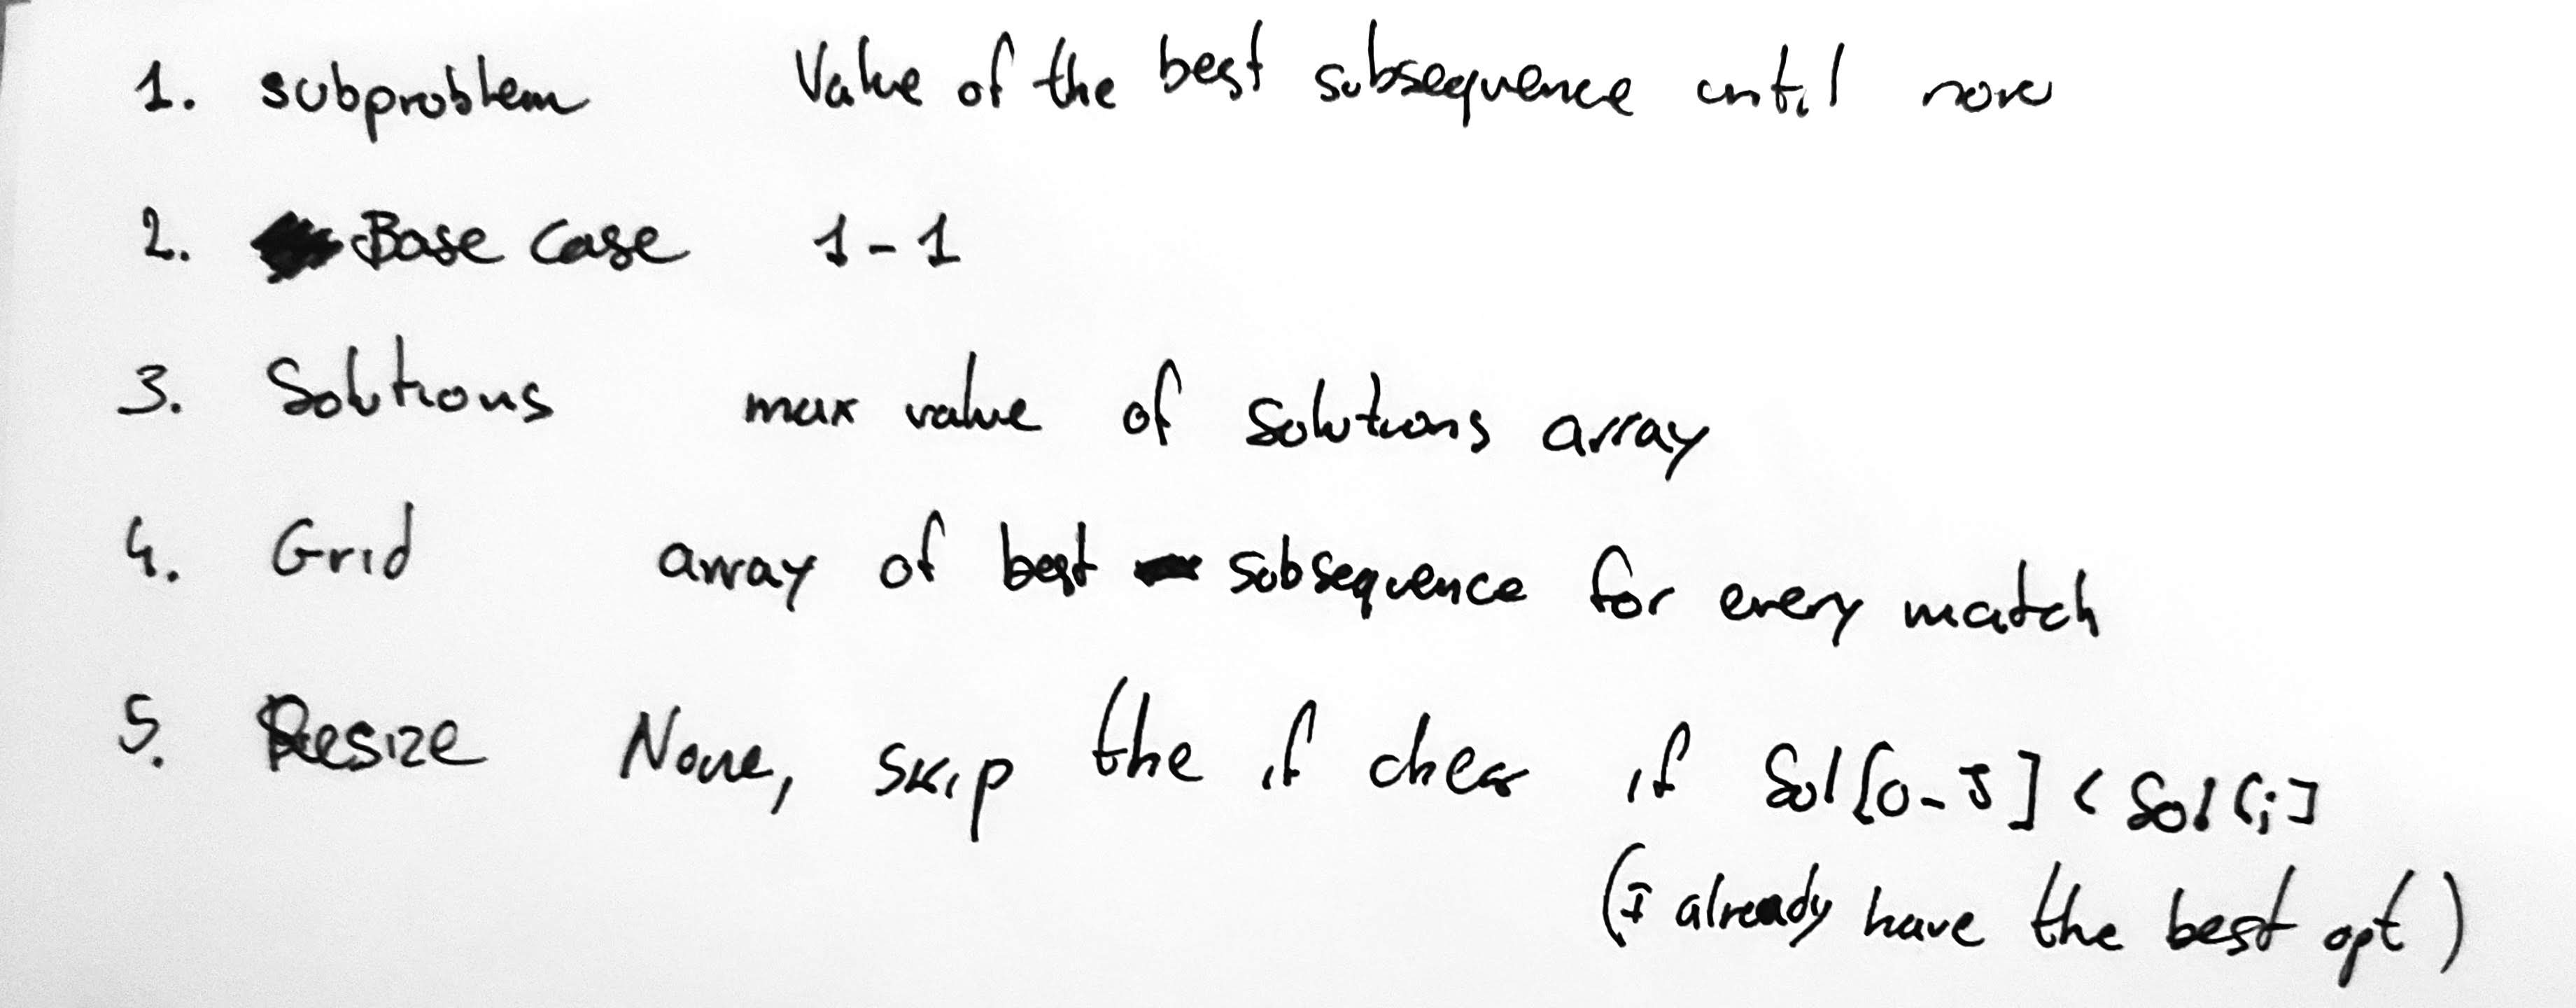 1. subproblem Value of the best subsequence until now
2. Base Case 1-1
3. Solutions max value of Solutions array
4. Grid array of best subsequence for every match
5. Resize None, skip the if check if Sol[0-J] < Sol[i]
(I already have the best opt)